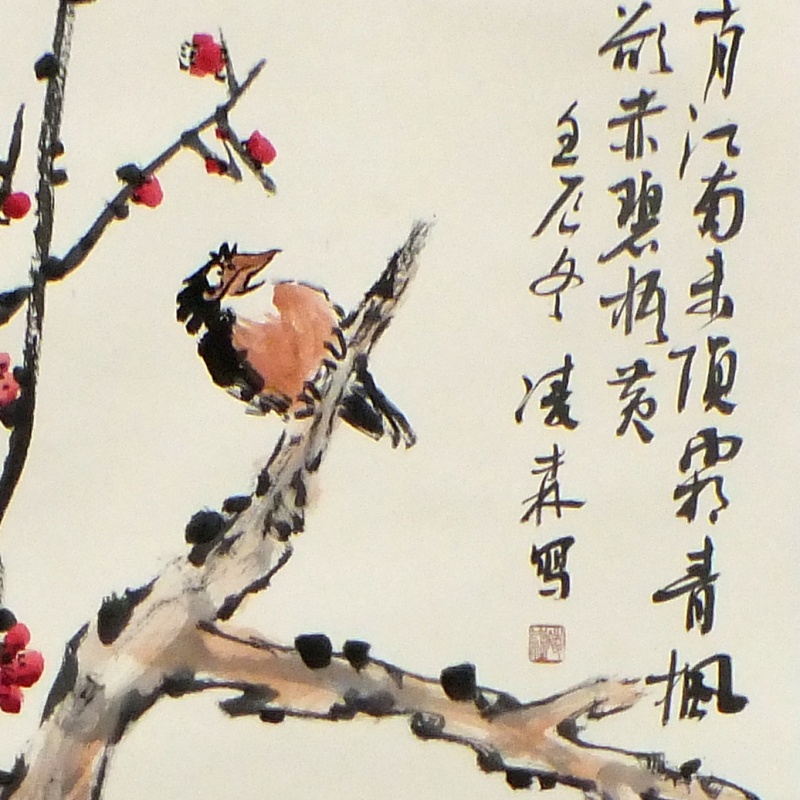 江南未須霜青楓
欲赤碧梧黃
壬辰冬
凌森寫